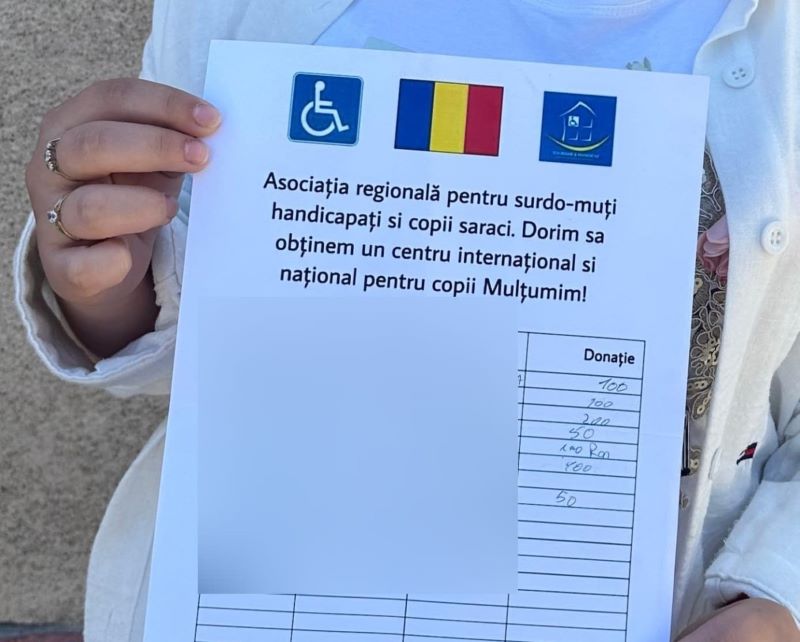 Asociația regională pentru surdo-muți
handicapați si copii saraci. Dorim sa
obținem un centru internațional si
național pentru copii Mulțumim!
Donație
100
200
50
50